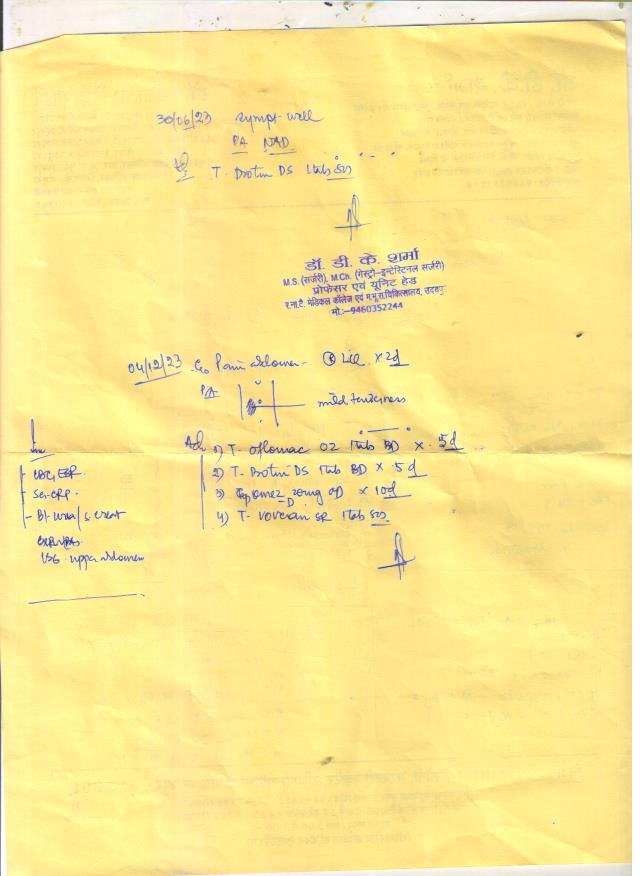 30/06/23 sympt. well
PA NAD
T. Brotin DS 1 tab sos
डॉ. डी. के. शर्मा
M.S. (सर्जरी), M.Ch. (गेस्ट्रो-इन्टेस्टिनल सर्जरी)
प्रोफेसर एवं यूनिट हेड
र.ना.टै. मेडिकल कॉलेज एवं म.भू.रा.चिकित्सालय, उदयपु
मो.:-9460352244
04/12/23 C/o Pain abdomen - x 2d
P/A
mild tenderness
Adv 1) T- oflomac OZ 1 tab BD x 5d
CBC, ESR. 2) T- Brotin DS 1 tab BD x 5d
- Se. CRP. 3) Cap omez 20mg OD x 10d
-D
- Bl. urea / s. creat 4) T- voveran SR 1 tab sos
USG upper abdomen